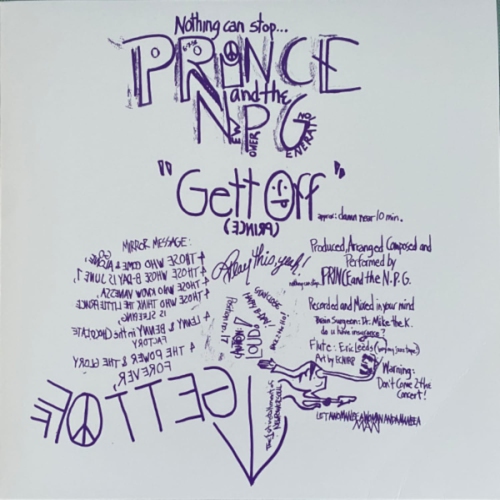 Nothing can stop...
PRINCE
and the
NPG
NEW POWER GENERATION
"Gett Off"
(PRINCE)
approx: damn near 10 min.
MIRROR MESSAGE:
4 THOSE WHO COME 4
4 THOSE WHOSE B-DAY IS JUNE 7
4 THOSE WHO KNOW VANESSA
4 THOSE WHO THINK THE LITTLE PRINCE
IS SLEEPING
LENNY & BENNY in the CHOCOLATE
FACTORY
4 THE POWER & THE GLORY
FOREVER,
GETT OFF
Play this, yeah!
Produced, Arranged Composed and
Performed by
PRINCE and the N.P.G.
Recorded and Mixed in your mind
Brain Surgeon: Dr. Mike the K.
do u have insurance?
Flute: Eric Leeds
Art by
Warning:
Don't Come 2 the
Concert!